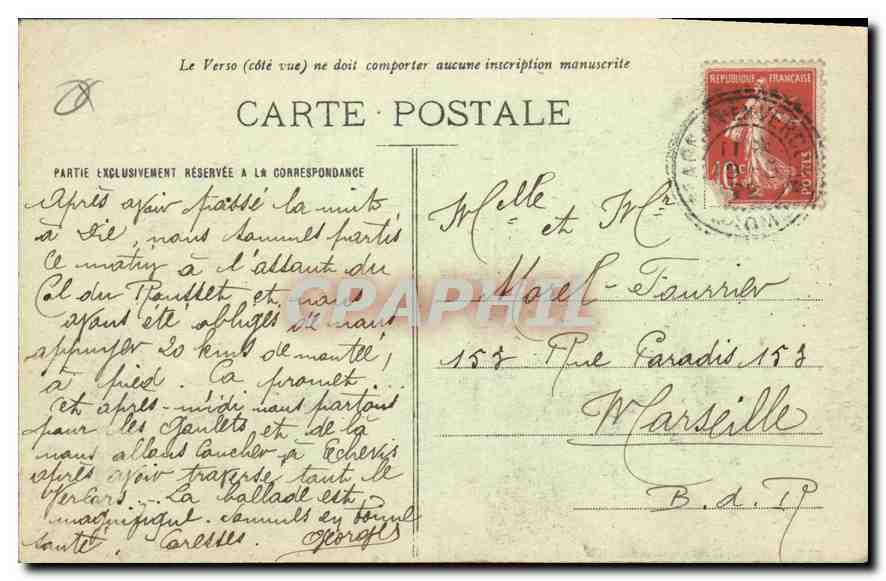 Le Verso (côté vue) ne doit comporter aucune inscription manuscrite
CARTE POSTALE
REPUBLIQUE FRANÇAISE
10c
POSTES
PARTIE EXCLUSIVEMENT RÉSERVÉE A LA CORRESPONDANCE
Après avoir passé la nuit
à Die, nous sommes partis
ce matin à l'assaut du
Col du Rousset et nous
avons été obligés de nous
appuyer 20 kms de montée,
à pied. Ça promet...
cet après-midi nous partons
pour les Goulets et de là
nous allons coucher à Echevis
après avoir traversé tout le
Vercors. La ballade est
magnifique. Sommes en bonne
santé. Caresses. Georges
Melle et Mr
Morel-Fourrier
153 Rue Paradis 153
Marseille
B. d. R
CPAPHIL